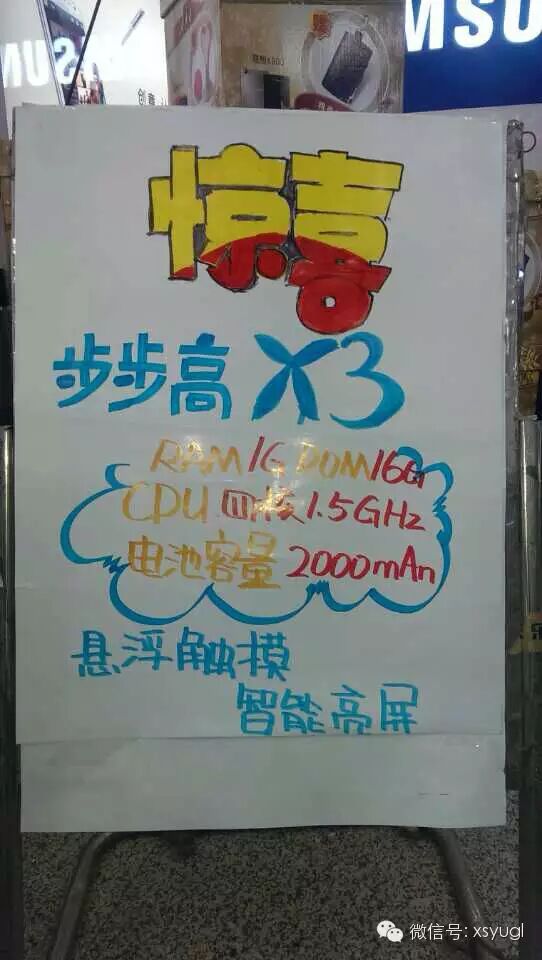 MSU
MSU
惊喜
步步高 X3
RAM 1G ROM 16G
CPU 四核 1.5GHz
电池容量 2000mAn
悬浮触摸
智能亮屏
微信号: xsyugl